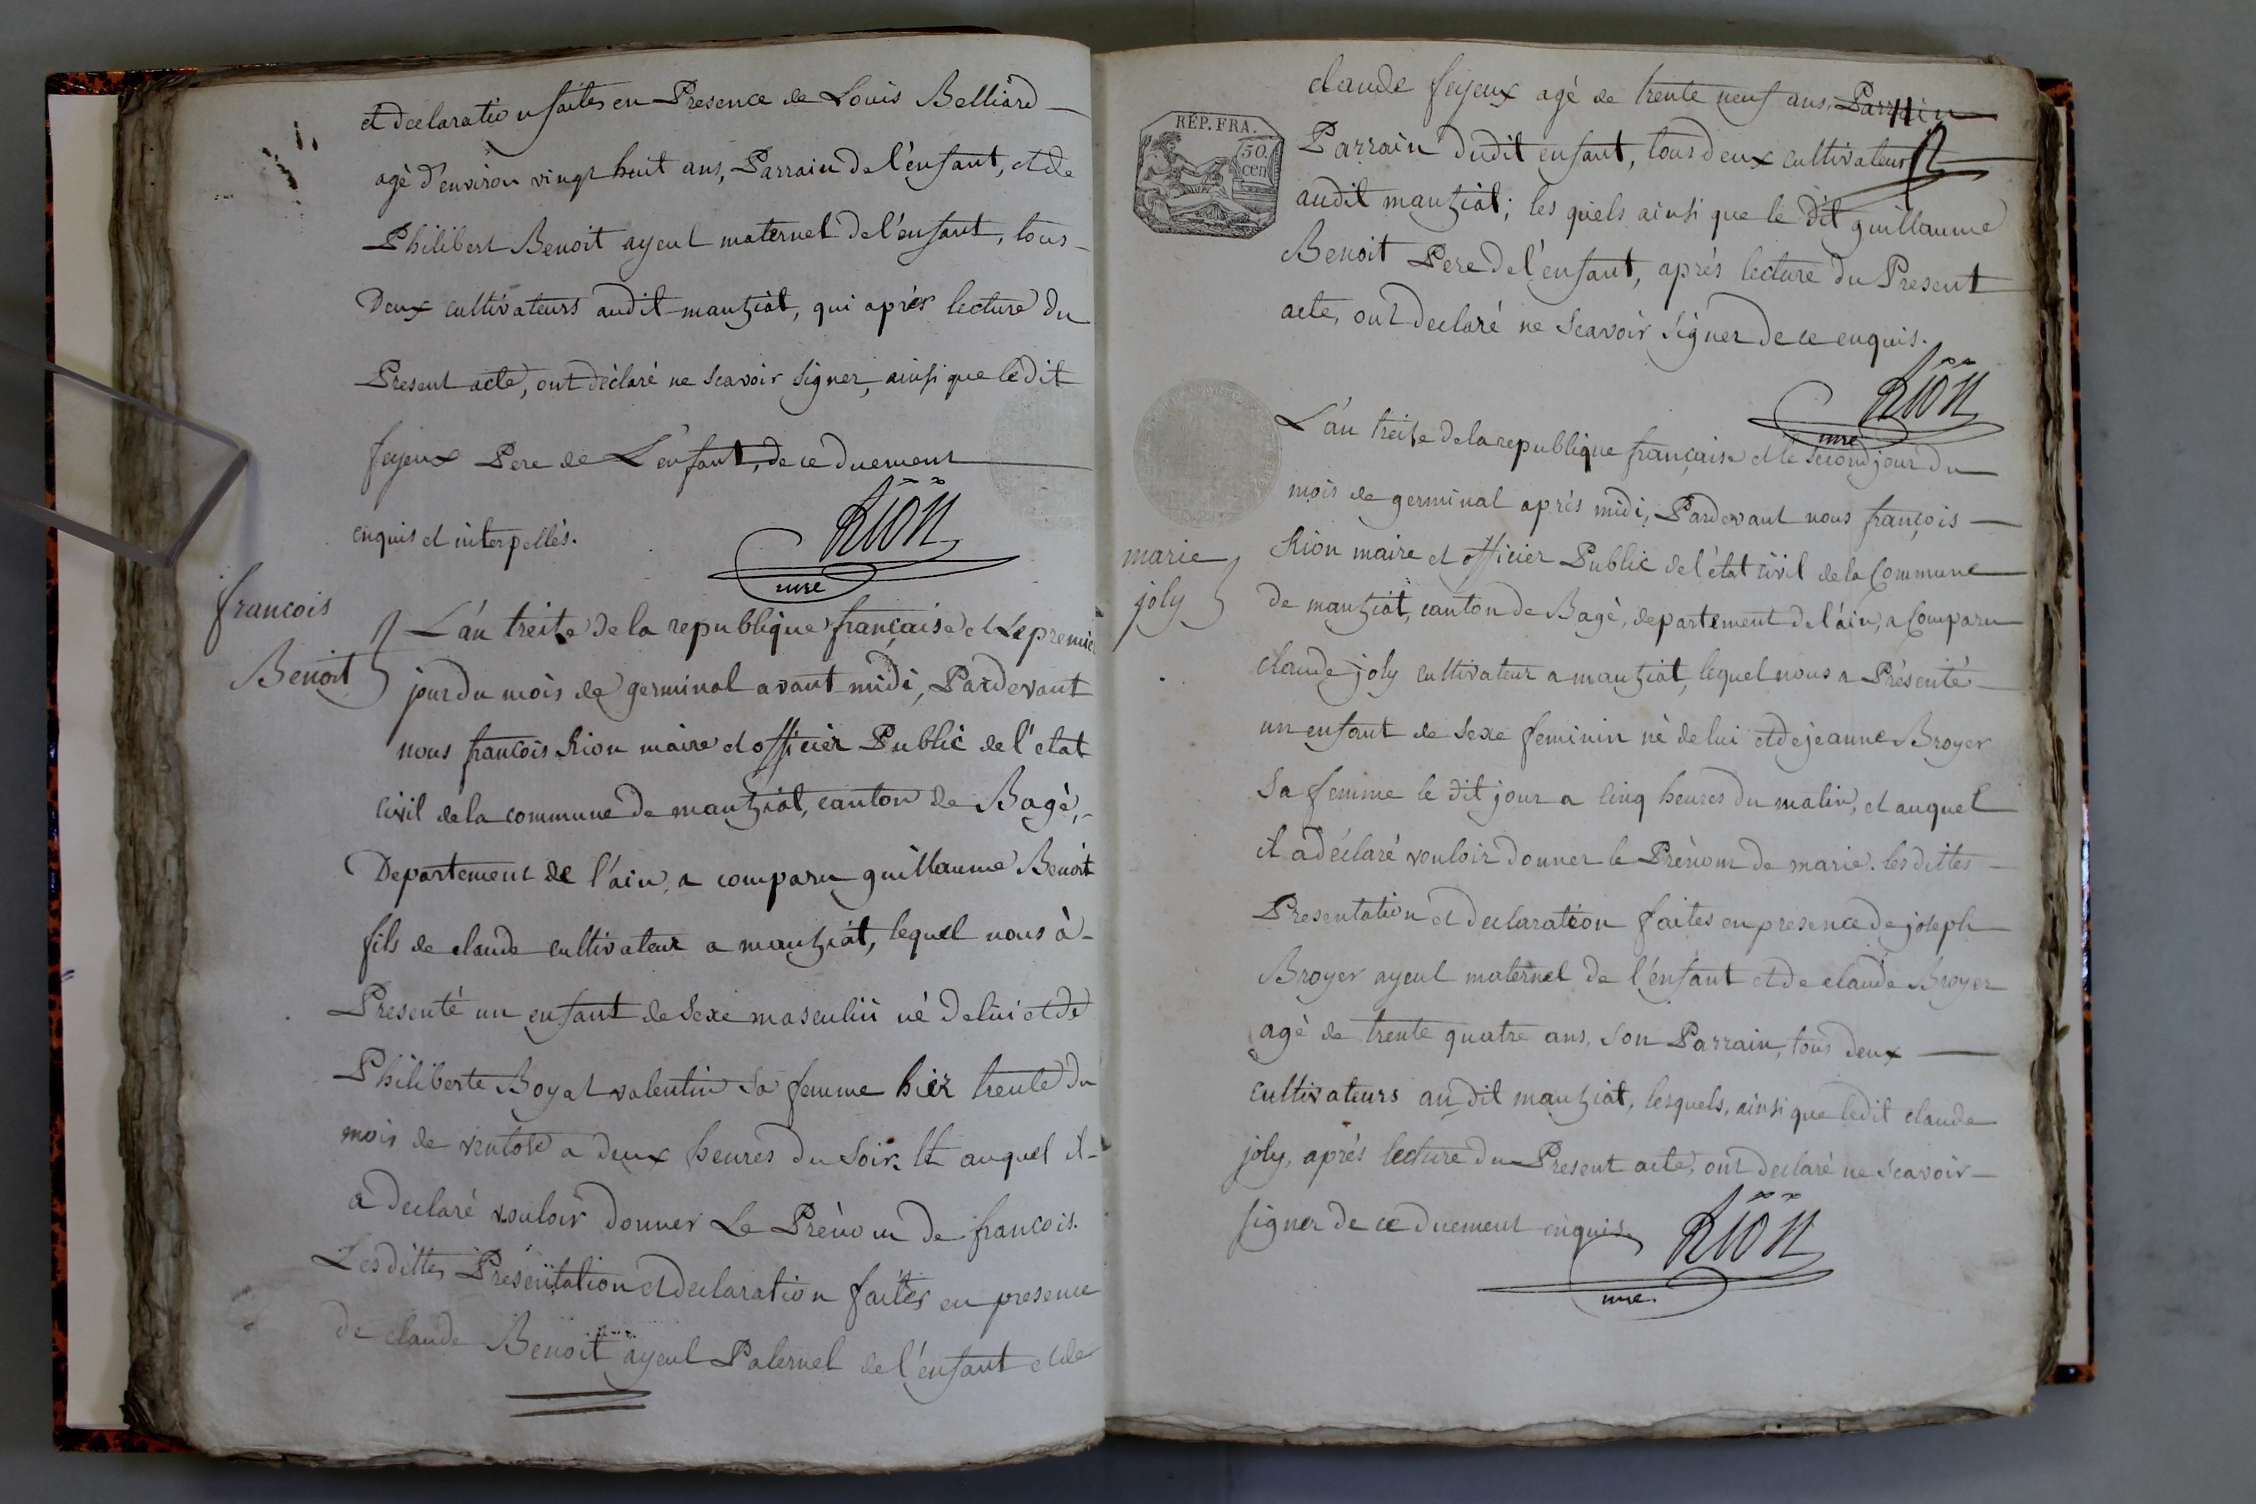 et declaration faites en Presence de Louis Belliard
agé d'environ vingt huit ans, Parrain de l'enfant, et de
Philibert Benoit ayeul maternel de l'enfant, tous
Deux cultivateurs audit mantziat, qui après lecture du
Present acte, ont déclaré ne scavoir signer, ainsi que le dit
feyeux Pere de L'enfant, de ce duement
enquis et interpellés.
Rion
mre
francois
Benoit
L'an treize de la republique française et Le premier
jour du mois de germinal avant midi, Pardevant
nous francois Rion maire et officier Public de l'etat
civil de la commune de mantziat, canton de Bagé,
Departement de l'ain, a comparu guillaume Benoit
fils de claude cultivateur a mantziat, lequel nous à
Presenté un enfant de sexe masculin né de lui et de
Philiberte Boyat valentin sa femme hier trente du
mois de ventose a deux heures du soir. Et auquel il
a declaré vouloir donner Le Prénom de francois.
Les dittes Presentation et declaration faites en presence
de claude Benoit ayeul Paternel de l'enfant et de
REP. FRA.
50
cen
claude feyeux agé de trente neuf ans, Parrain
Parrain dudit enfant, tous deux cultivateurs
audit mantziat; les quels ainsi que le dit guillaume
Benoit Pere de l'enfant, aprés lecture du Present
acte, ont declaré ne scavoir signer de ce enquis.
Rion
mre
marie
joly
L'an treize de la republique française et le second jour du
mois de germinal aprés midi, Pardevant nous françois
Rion maire et officier Public de l'état civil de la Commune
de mantziat, canton de Bagé, departement de l'ain, a Comparu
claude joly cultivateur a mantziat, lequel nous a Présenté
un enfant de sexe feminin né de lui et de jeanne Broyer
sa femme le dit jour a cinq heures du matin, et auquel
il a déclaré vouloir donner le Prénom de marie. les dittes
Presentation et declaration faites en presence de joseph
Broyer ayeul maternel de l'enfant et de claude Broyer
agé de trente quatre ans, son Parrain, tous deux
cultivateurs audit mantziat, lesquels, ainsi que ledit claude
joly, aprés lecture du Present acte, ont declaré ne scavoir
signer de ce duement enquis.
Rion
mre.